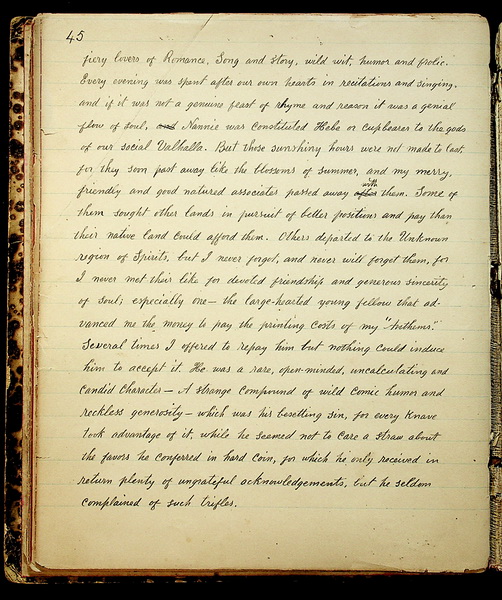 45
fiery lovers of Romance, Song and Story, wild wit, humor and frolic.
Every evening was spent after our own hearts in recitations and singing,
and if it was not a genuine feast of rhyme and reason it was a genial
flow of soul, and Nannie was constituted Hebe or Cupbearer to the gods
of our social Valhalla. But those sunshiny hours were not made to last
for they soon past away like the blossoms of summer, and my merry,
friendly and good natured associates passed away after with them. Some of
them sought other lands in pursuit of better positions and pay than
their native land could afford them. Others departed to the Unknown
region of Spirits, but I never forgot, and never will forget them, for
I never met their like for devoted friendship and generous sincerity
of soul; especially one — the large-hearted young fellow that ad-
vanced me the money to pay the printing costs of my "Anthems."
Several times I offered to repay him but nothing could induce
him to accept it. He was a rare, open-minded, uncalculating and
candid Character — A strange compound of wild Comic humor and
reckless generosity — which was his besetting sin, for every Knave
took advantage of it, while he seemed not to care a straw about
the favors he conferred in hard Coin, for which he only received in
return plenty of ungrateful acknowledgements, but he seldom
complained of such trifles.